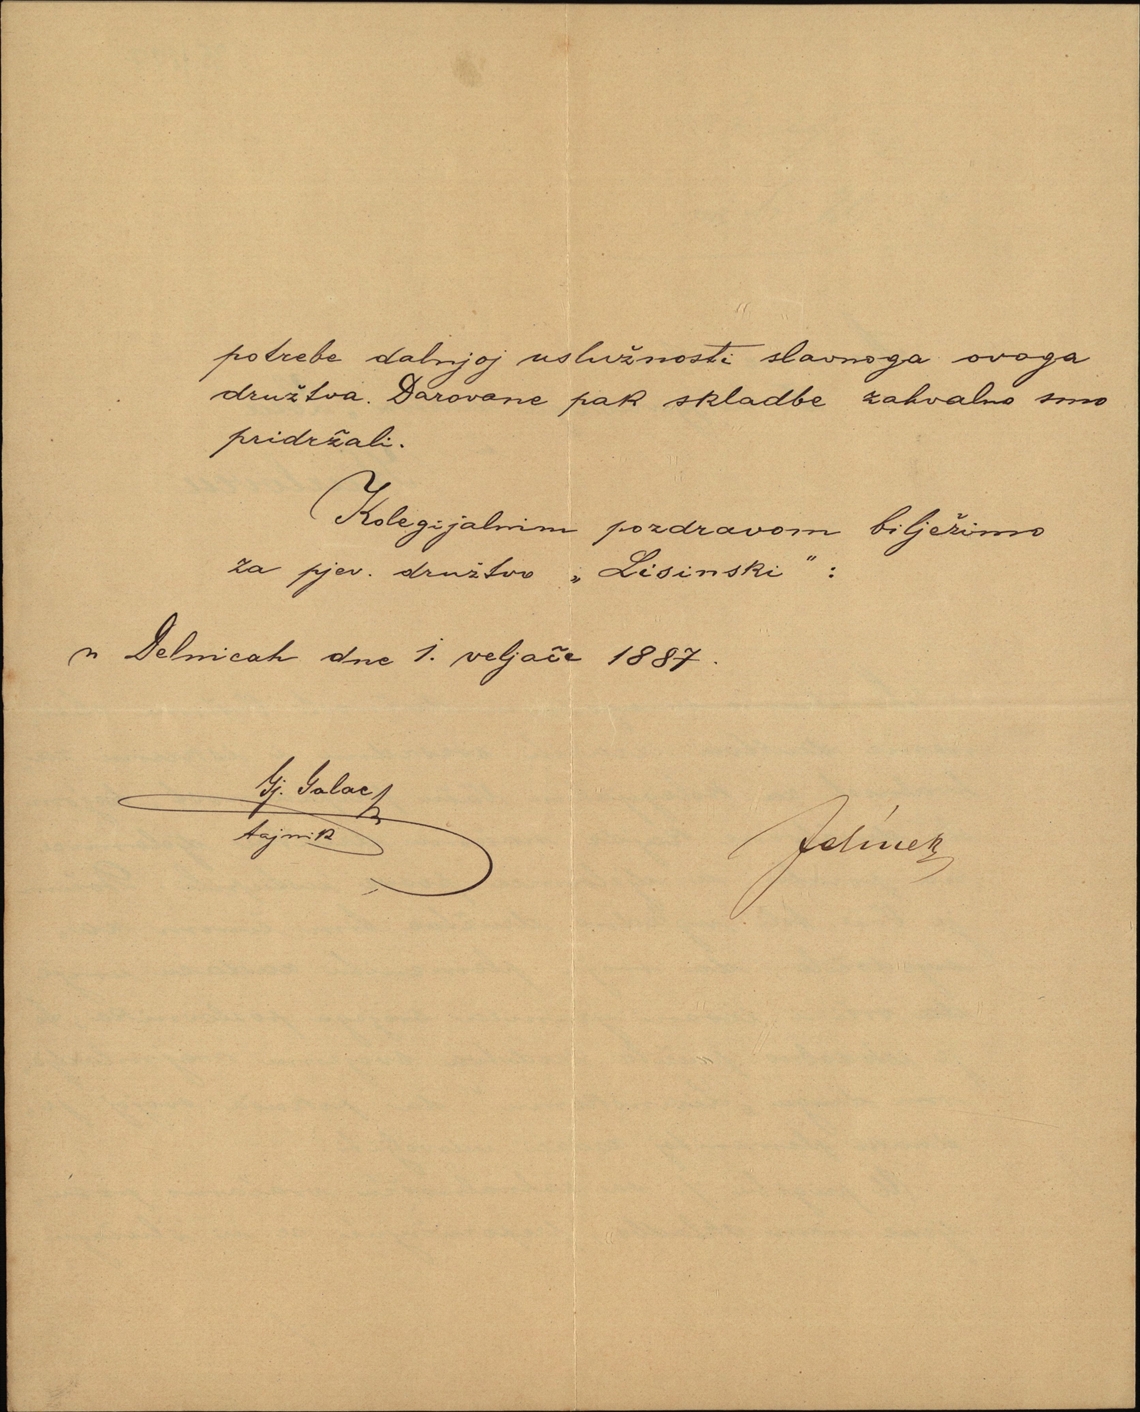 potrebe dalnjoj uslužnosti slavnoga ovoga
društva. Darovane pak skladbe zahvalno smo
pridržali.
Kolegijalnim pozdravom bilježimo
za pjev. družtvo „Lisinski":
u Delnicah dne 1. veljače 1887.
Gj. Golac
tajnik
Jelinek